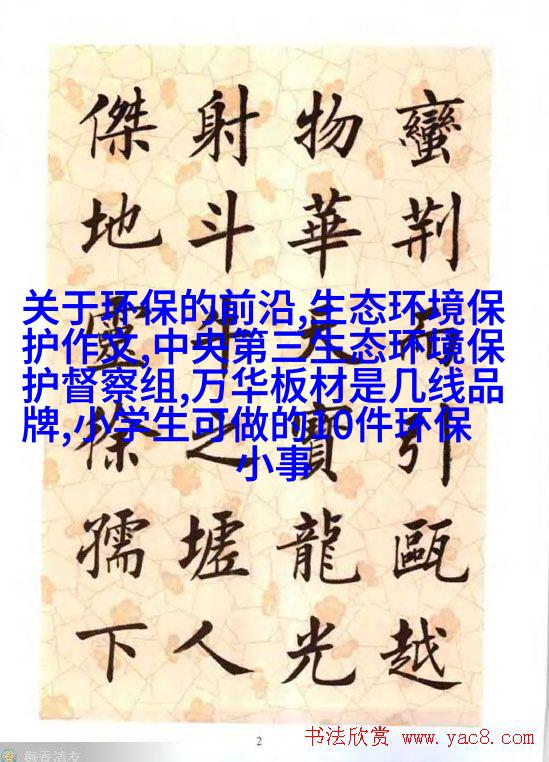 蠻荆而引甌越
物華天寶龍光
射斗牛之墟人
傑地靈徐孺下
关于环保的前沿,生态环境保
护作文,中央第三生态环境保
护督察组,万华板材是几线品
牌,小学生可做的10件环保
小事
2
书法欣赏 www.yac8.com